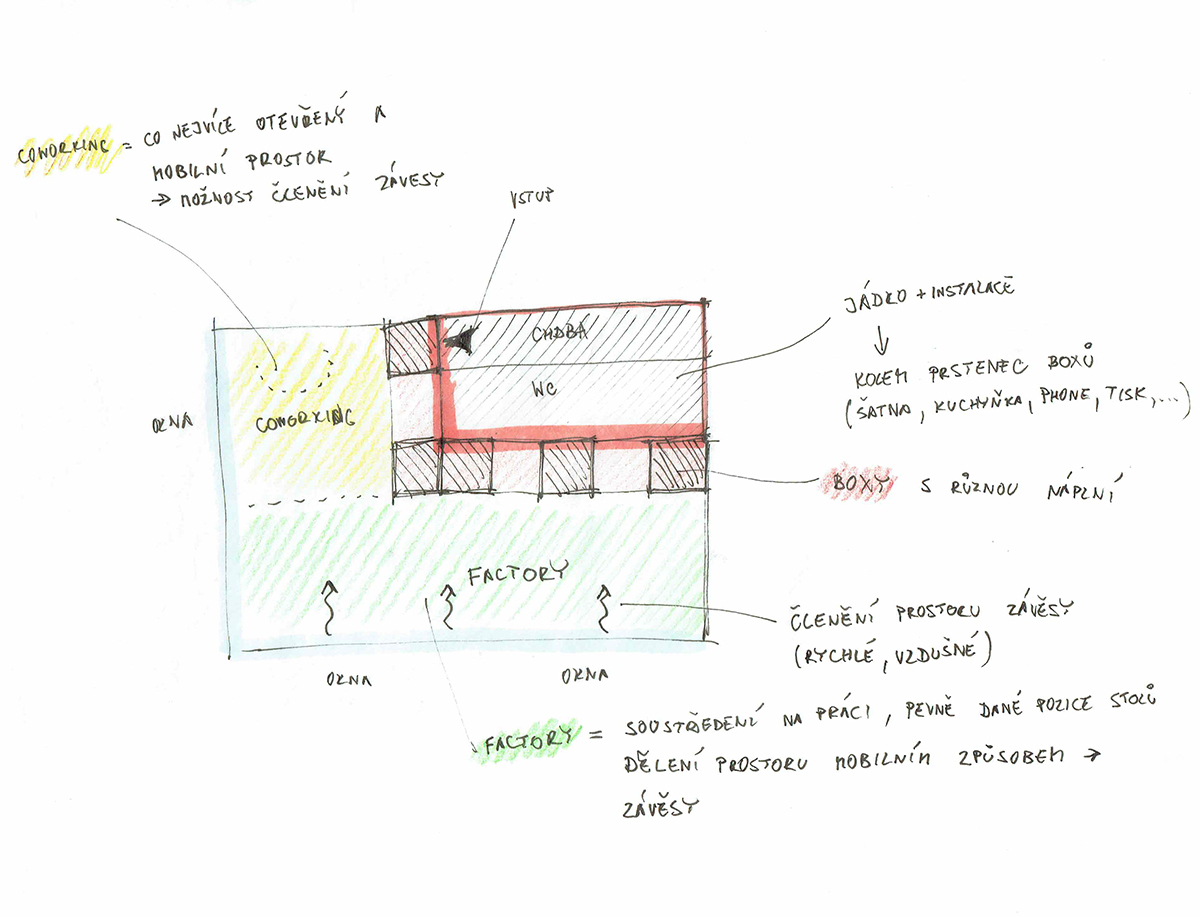 COWORKING = CO NEJVÍCE OTEVŘENÝ A
MOBILNÍ PROSTOR
→ MOŽNOST ČLENĚNÍ ZÁVESY
VSTUP
JÁDRO + INSTALACE
↓
KOLEM PRSTENEC BOXŮ
(ŠATNA, KUCHYŇKA, PHONE, TISK,...)
CHDBA
WC
OKNA
COWORKING
BOXY S RŮZNOU NÁPLNÍ
FACTORY
ČLENĚNÍ PROSTORU ZÁVĚSY
(RYCHLÉ, VZDUŠNÉ)
OKNA
OKNA
FACTORY = SOUSTŘEDENÍ NA PRÁCI, PEVNĚ DANÉ POZICE STOLŮ
DĚLENÍ PROSTORU MOBILNÍM ZPŮSOBEM →
ZÁVĚSY